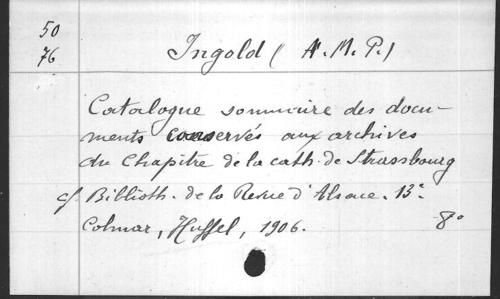 50
76
Ingold ( A. M. P. )
Catalogue sommaire des docu-
ments conservés aux archives
du Chapitre de la cath. de Strassbourg
cf. Biblioth. de la Revue d'Alsace. 13e
Colmar, Huffel, 1906. 8°